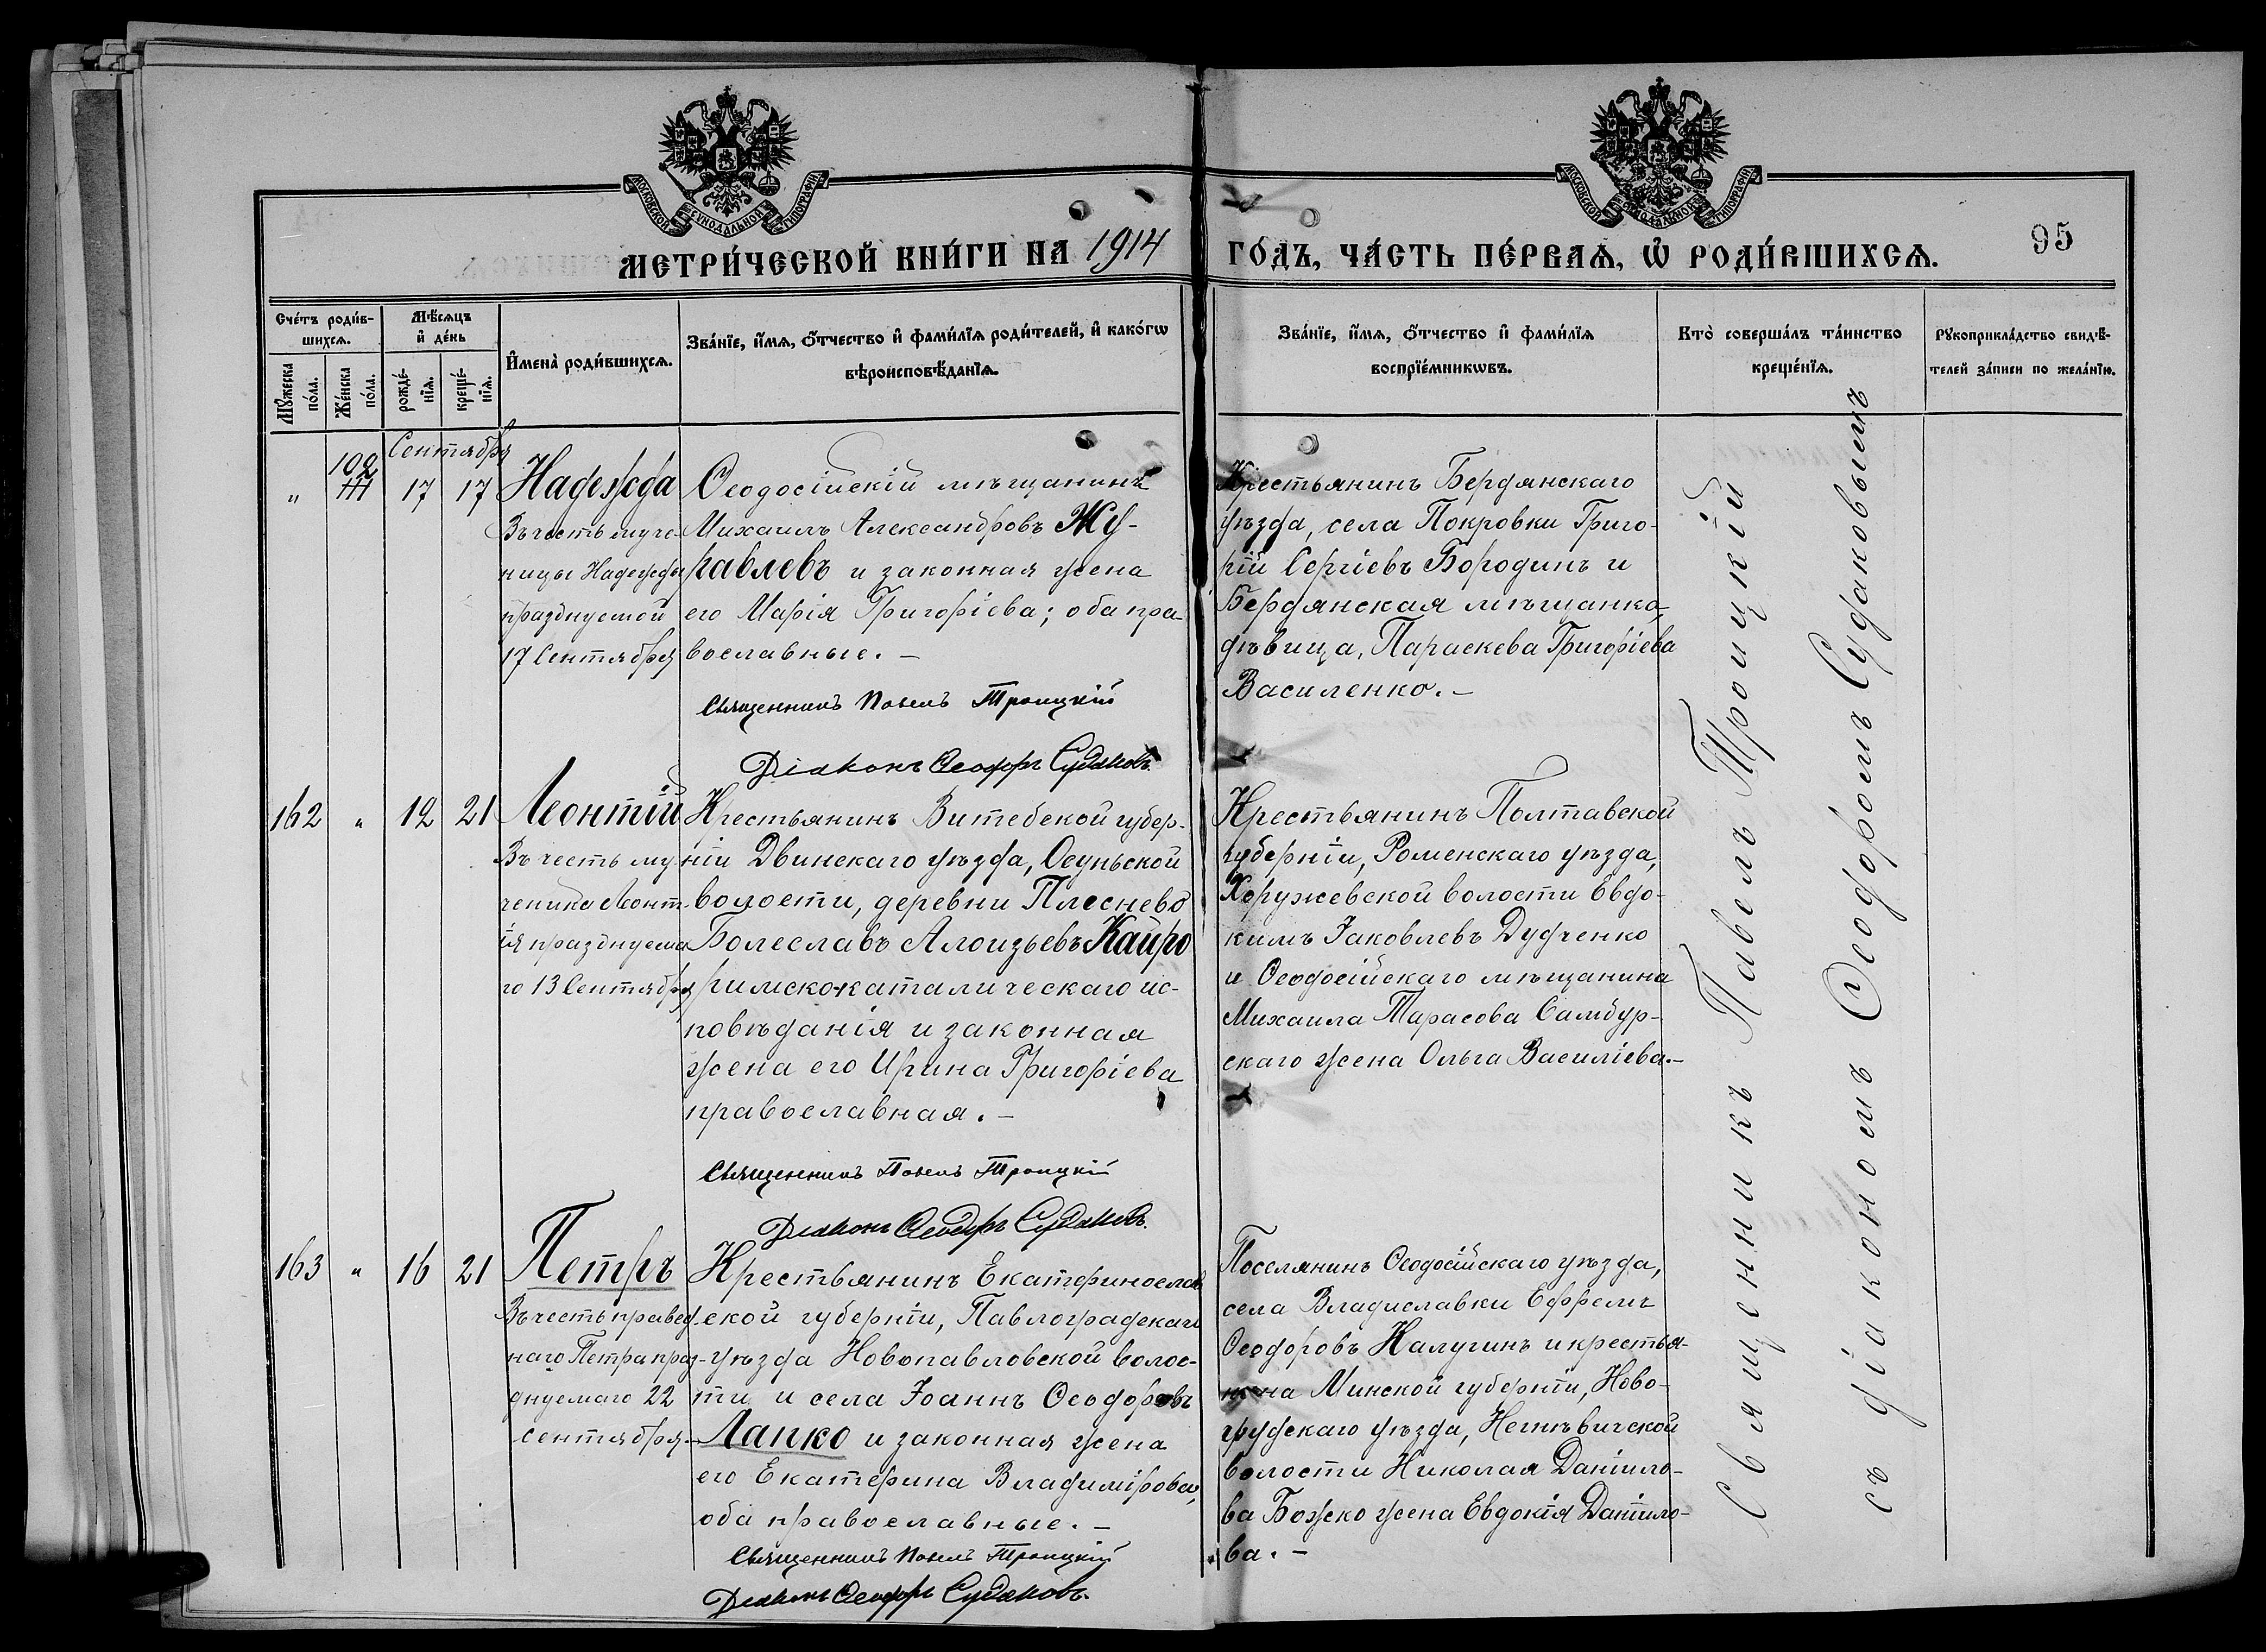 МОСКОВСКОЙ СѴНОДАЛЬНОЙ ТИПОГРАФІИ
МОСКОВСКОЙ СѴНОДАЛЬНОЙ ТИПОГРАФІИ
МЕТРИ́ЧЕСКОЙ КНИ́ГИ НА 1914 ГО́ДЪ, ЧА́СТЬ ПЕ́РВАѦ, Ѽ РОДИ́ВШИХСѦ.
95
Сче́тъ роди́в-
шихсѧ.
Мꙋ́жеска
по́ла.
Же́нска
по́ла.
Мѣ́сѧцъ
и҆ де́нь
рожде́-
нїѧ.
креще́-
нїѧ.
И҆мена̀ роди́вшихсѧ.
Зва́нїе, и҆́мѧ, ѻ҆́тчество и҆ фами́лїѧ роди́телей, и҆ како́гѡ
вѣроисповѣ́данїѧ.
Зва́нїе, и҆́мѧ, ѻ҆́тчество и҆ фами́лїѧ
воспрїе́мникѡвъ.
Кто̀ соверша́лъ та́инство
креще́нїѧ.
Рꙋкоприкла́дство свидѣ́-
телей за́писи по жела́нїю.
Сентября
102
„ 111 17 17
Надежда
Въ честь муче-
ницы Надежды
празднуемой
17 Сентября
Ѳеодосійскій мѣщанинъ
Михаилъ Александровъ Жу-
равлевъ и законная жена
его Марія Григоріева; оба пра-
вославные. –
Священникъ Павелъ Троицкій
Діаконъ Ѳеодоръ Судаковъ.
Крестьянинъ Бердянскаго
уѣзда, села Покровки Григо-
рій Сергіевъ Бородинъ и
Бердянская мѣщанка,
дѣвица, Параскева Григоріева
Василенко. –
162 „ 12 21
Леонтій
Въ честь му-
ченика Леонт-
ія празднуема
го 13 Сентября
Крестьянинъ Витебской губер-
ніи Двинскаго уѣзда, Осуньской
волости, деревни Плеснево
Болеславъ Алоизьевъ Кайро
римско-каталическаго ис-
повѣданія и законная
жена его Ирина Григоріева
православная. –
Священникъ Павелъ Троицкій
Діаконъ Ѳеодоръ Судаковъ.
Крестьянинъ Полтавской
губерніи, Роменскаго уѣзда,
Хоружевской волости Евдо-
кимъ Іаковлевъ Дудченко
и Ѳеодосійскаго мѣщанина
Михаила Тарасова Самбур-
скаго жена Ольга Василіева. –
163 „ 16 21
Петръ
Въ честь правед-
наго Петра праз-
днуемаго 22
сентября. –
Крестьянинъ Екатеринослав
ской губерніи, Павлоградскаго
уѣзда Новопавловской волос-
ти и села Іоаннъ Ѳеодоровъ
Лапко и законная жена
его Екатерина Владимірова,
оба православные. –
Священникъ Павелъ Троицкій
Діаконъ Ѳеодоръ Судаковъ.
Поселянинъ Ѳеодосійскаго уѣзда,
села Владиславки Ефремъ
Ѳеодоровъ Калугинъ и крестья-
нина Минской губерніи, Ново-
грудскаго уѣзда, Негнѣвичской
волости Николая Даніило-
ва Божко жена Евдокія Даніило-
ва. –
Священникъ Павелъ Троицкій
съ діакономъ Ѳеодоромъ Судаковымъ